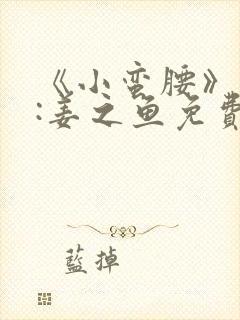 《小蛮腰》
:姜之鱼免費
藍掉